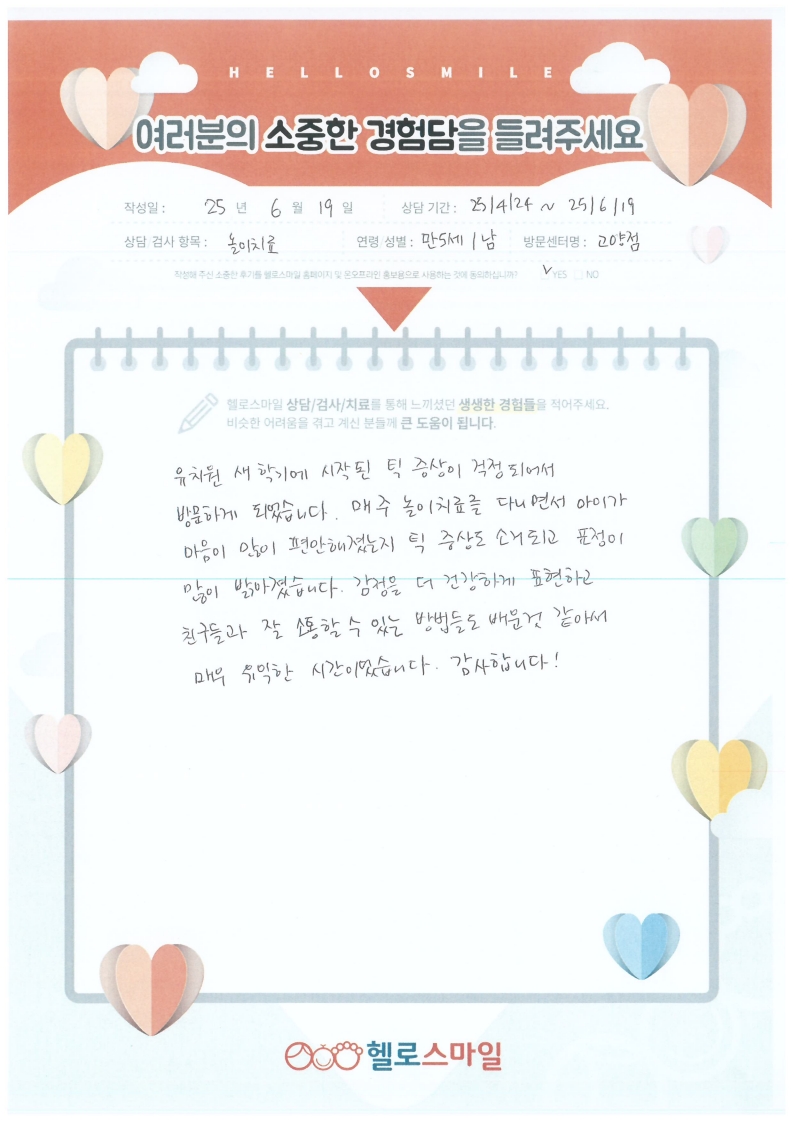 HELLOSMILE
여러분의 소중한 경험담을 들려주세요
작성일 : 25 년 6 월 19 일 상담 기간 : 25/4/24 ~ 25/6/19
상담 검사 항목 : 놀이치료 연령 성별 : 만5세 / 남 방문센터명 : 고양점
작성해 주신 소중한 후기를 헬로스마일 홈페이지 및 온오프라인 홍보용으로 사용하는 것에 동의하십니까? ✓ YES NO
헬로스마일 상담/검사/치료를 통해 느끼셨던 생생한 경험들을 적어주세요.
비슷한 어려움을 겪고 계신 분들께 큰 도움이 됩니다.
유치원 새 학기에 시작된 틱 증상이 걱정되어서
방문하게 되었습니다. 매주 놀이치료를 다니면서 아이가
마음이 많이 편안해졌는지 틱 증상도 소거되고 표정이
많이 밝아졌습니다. 감정을 더 건강하게 표현하고
친구들과 잘 소통할 수 있는 방법들도 배운것 같아서
매우 유익한 시간이었습니다. 감사합니다!
헬로스마일